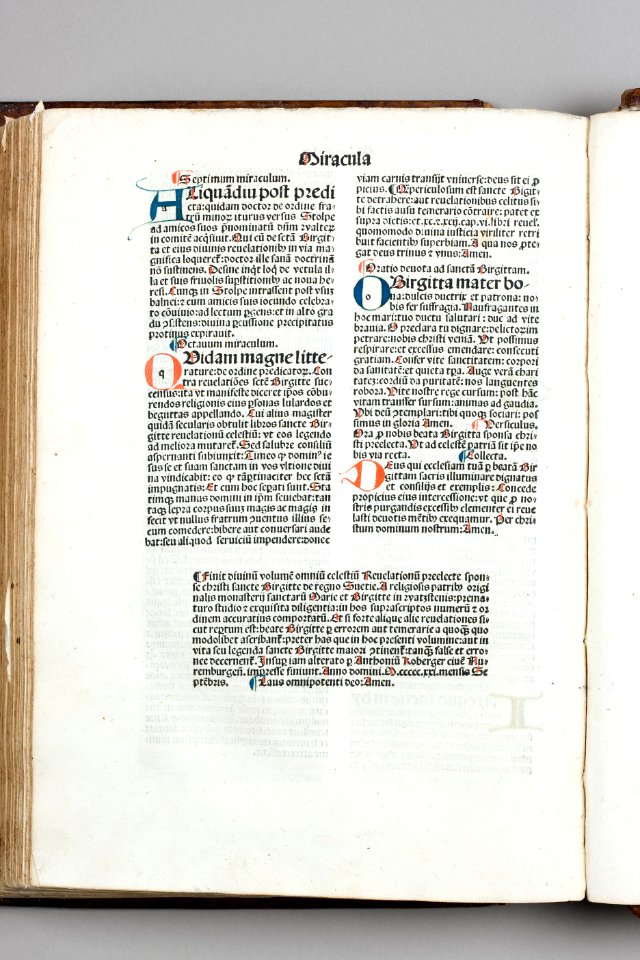 Miracula
Septimum miraculum.
ALiquãdiu post predi
cta: quidam doctor de ordine fra-
trũ minoꝝ iturus versus Stolpe
ad amicos suos
in comitẽ acq̃siuit. Qui cũ de sctã Birgit-
ta et eius diuinis reuelatiõib in via ma-
gnifica loqueret: doctor ille sanã doctrinã
nõ sustinens. Desine inqt loq̃ de vetula il-
la et suis friuolis supstitiõib ac noua he-
resi. Cunq in Stolpe intrassent post vsum
balnei: z cum amicis suis iocundo celebra-
to cõuiuio: ad lectum pgens: et in alto gra-
du ꝯsistens: diuina pcussione precipitatus
protinus expirauit.
Octauum miraculum.
QVidam magne litte-
rature: de ordine predicatoꝝ. Con
tra reuelatiões sctẽ Birgitte suc-
census: ita vt manifeste diceret ipos cõbu-
rendos religionis eius psonas lulardos et
beguttas appellando. Cui alius magister
quidã secularis obtulit libros sancte Bir-
gitte reuelationũ celestiũ: vt eos legendo
ad meliora mutaret. Sed salubre consiliũ
aspernanti subiunxit: Timeo q domin ie
sus se et suam sanctam in vos vltione diui
na vindicabit: eo q tãptinaciter hec sctã
impugnatis: Et cum hoc sepati sunt. Sta
timq manus domini in ipm seuiebat: tan-
taq lepra corpus suuz magis ac magis in
fecit vt nullus fratrum potentius illius se-
cum comedere: bibere aut conuersari aude
bat: seu aliquod seruiciũ impendere: donec
viam carnis transijt vniuerse: deus sit ei p
picius. Qm periculosum est sancte Birgit-
te detrahere: aut reuelationibus celitus si-
bi factis ausu temerario cõtraire: patet ex
supra dictis: et .xc. z .xcij. cap. vi. libri reuel.
quomodo diuina iusticia viriliter retri
buit facientib superbiam. A qua nos pte-
gat deus trinus z vnus: Amen.
Oratio deuota ad sanctã Birgittam.
OBirgitta mater bo-
na: dulcis ductrix et patrona: no-
bis fer suffragia. Naufragantes in
hoc mari: tuo ductu salutari: duc ad vite
brauia. O preclara tu dignare: delictoꝝ im
petrare: nobis christi veniã. Vt possimus
respirare: et excessus emendare: consecuti
gratiam. Confer vite sanctitatem: corpori
da sanitatẽ: et quieta tpa. Auge verã chari
tatez: cordiũ da puritatẽ: nos languentes
robora. Vite nostre rege cursum: post hãc
vitam transfer sursum: animas ad gaudia.
Vbi deũ ꝯtemplari: tibi quoq sociari: pos
simus in gloria Amen. Versiculus.
Ora p nobis beata Birgitta sponsa chri-
sti preelecta. Vt ad celestẽ patriã sit ipe no-
bis via recta. Collecta.
DEus qui ecclesiam tuã p beatã Bir
gittam sacris illuminare dignatus
es et consilijs et exemplis: Concede
propicius eius intercessione: vt que p no-
stris purgandis excessib clementer ei reue
lasti deuotis mẽtib exequamur. Per chri-
stum dominum nostrum: Amen.
Finit diuinũ volumẽ omniũ celestiũ Reuelationũ preelecte spon-
se christi sancte Birgitte de regno Suetie. A religiosis patrib origi
nalis monasterij sanctarũ Marie et Birgitte in watzstenis: prema-
turo studio z exquisita diligentia: in hos suprascriptos numerũ z or
dinem accuratius comportatũ. Et si forte alique alie reuelationes si-
cut reptum est: beate Birgitte p errorem aut temerarie a quoq quo
modolibet ascribant: preter has que in hoc presenti volumine: aut in
vita seu legenda sancte Birgitte maiori ꝯtinent: tanq false et erro-
nee decernent. Insup iam alterato p Anthoniũ Koberger ciuẽ Nu-
remburgeñ. impresse finiunt. Anno domini .M.ccccc.xxi. mensis Se
ptẽbris. Laus omnipotenti deo: Amen.